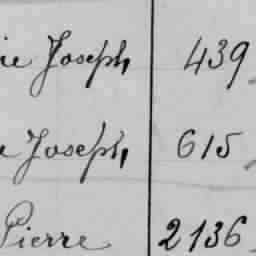 ie Joseph 439
e Joseph 615
Pierre 2136